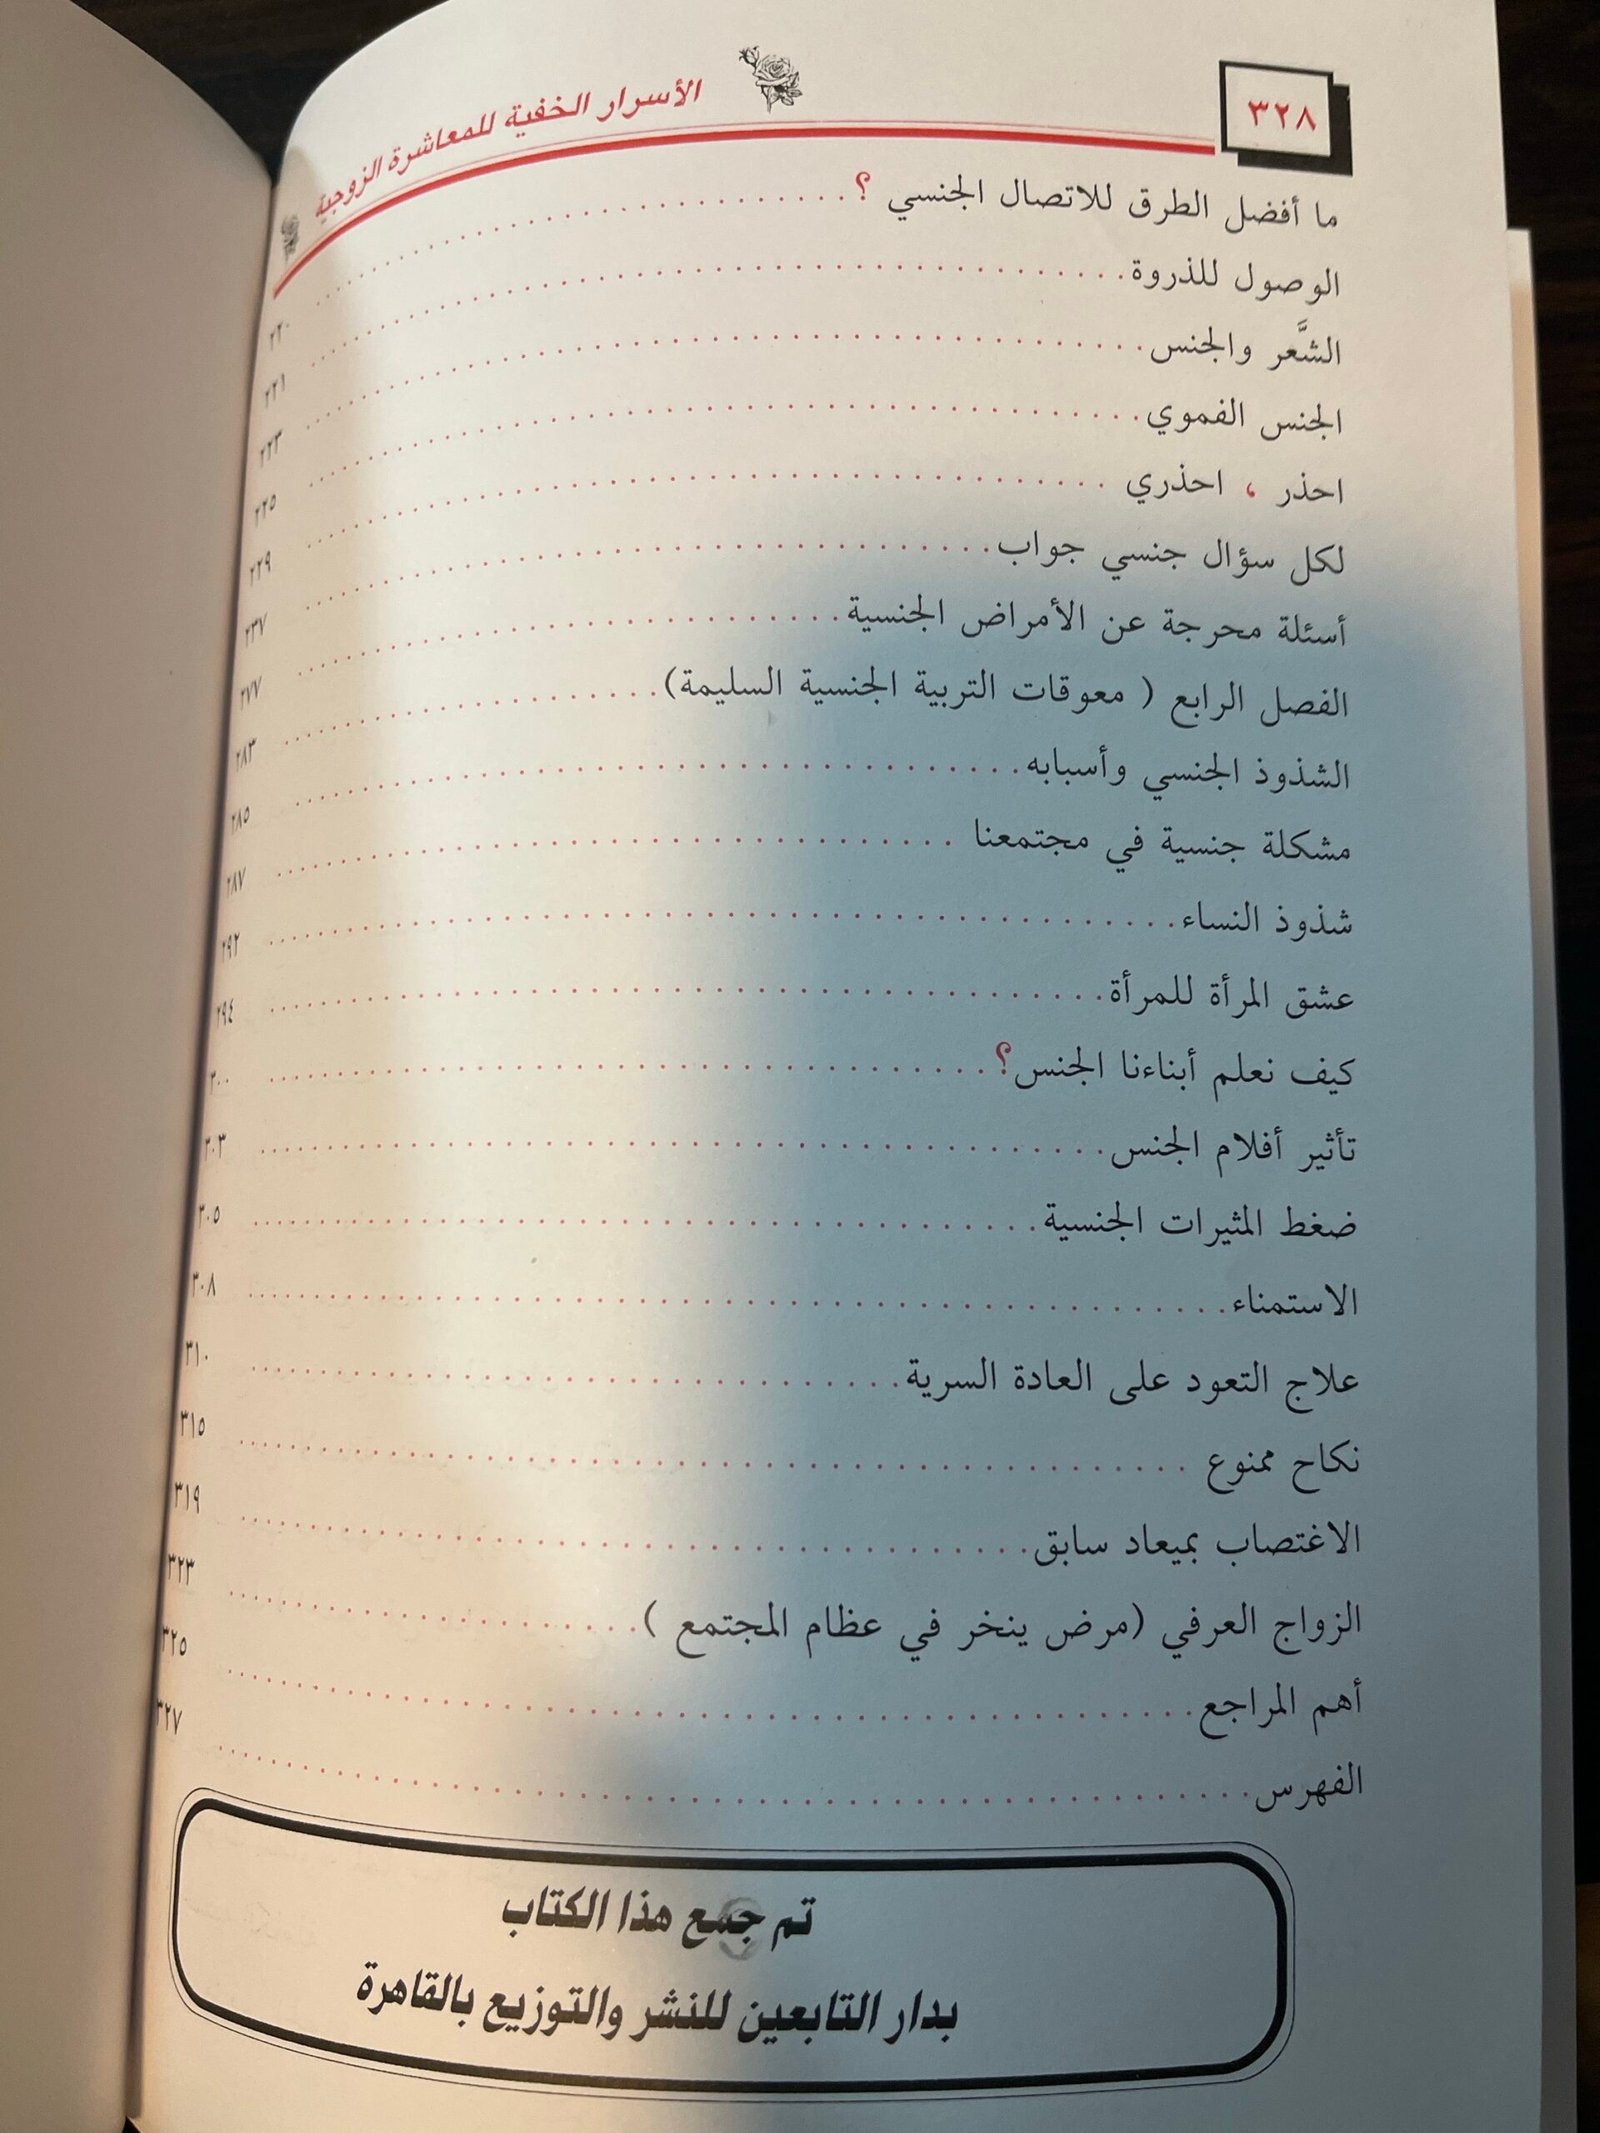 ٣٢٨ الأسرار الخفية للمعاشرة الزوجية
ما أفضل الطرق للاتصال الجنسي ؟ ٢٢٠
الوصول للذروة ٢٢١
الشَّعر والجنس ٢٢٣
الجنس الفموي ٢٢٥
احذر ، احذري ٢٢٩
لكل سؤال جنسي جواب ٢٣٧
أسئلة محرجة عن الأمراض الجنسية ٢٧٧
الفصل الرابع ( معوقات التربية الجنسية السليمة) ٢٨٣
الشذوذ الجنسي وأسبابه ٢٨٥
مشكلة جنسية في مجتمعنا ٢٨٧
شذوذ النساء ٢٩٢
عشق المرأة للمرأة ٢٩٤
كيف نعلم أبناءنا الجنس؟ ٣٠٠
تأثير أفلام الجنس ٣٠٣
ضغط المثيرات الجنسية ٣٠٥
الاستمناء ٣٠٨
علاج التعود على العادة السرية ٣١٠
نكاح ممنوع ٣١٥
الاغتصاب بميعاد سابق ٣١٩
الزواج العرفي (مرض ينخر في عظام المجتمع ) ٣٢٣
أهم المراجع ٣٢٥
الفهرس ٣٢٧
تم جمع هذا الكتاب
بدار التابعين للنشر والتوزيع بالقاهرة